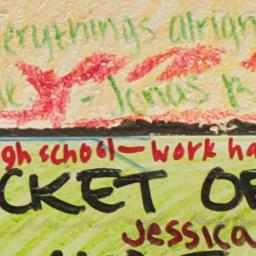 erythings alrigh
- Jonas B
gh school - work ha
CKET OF
Jessica